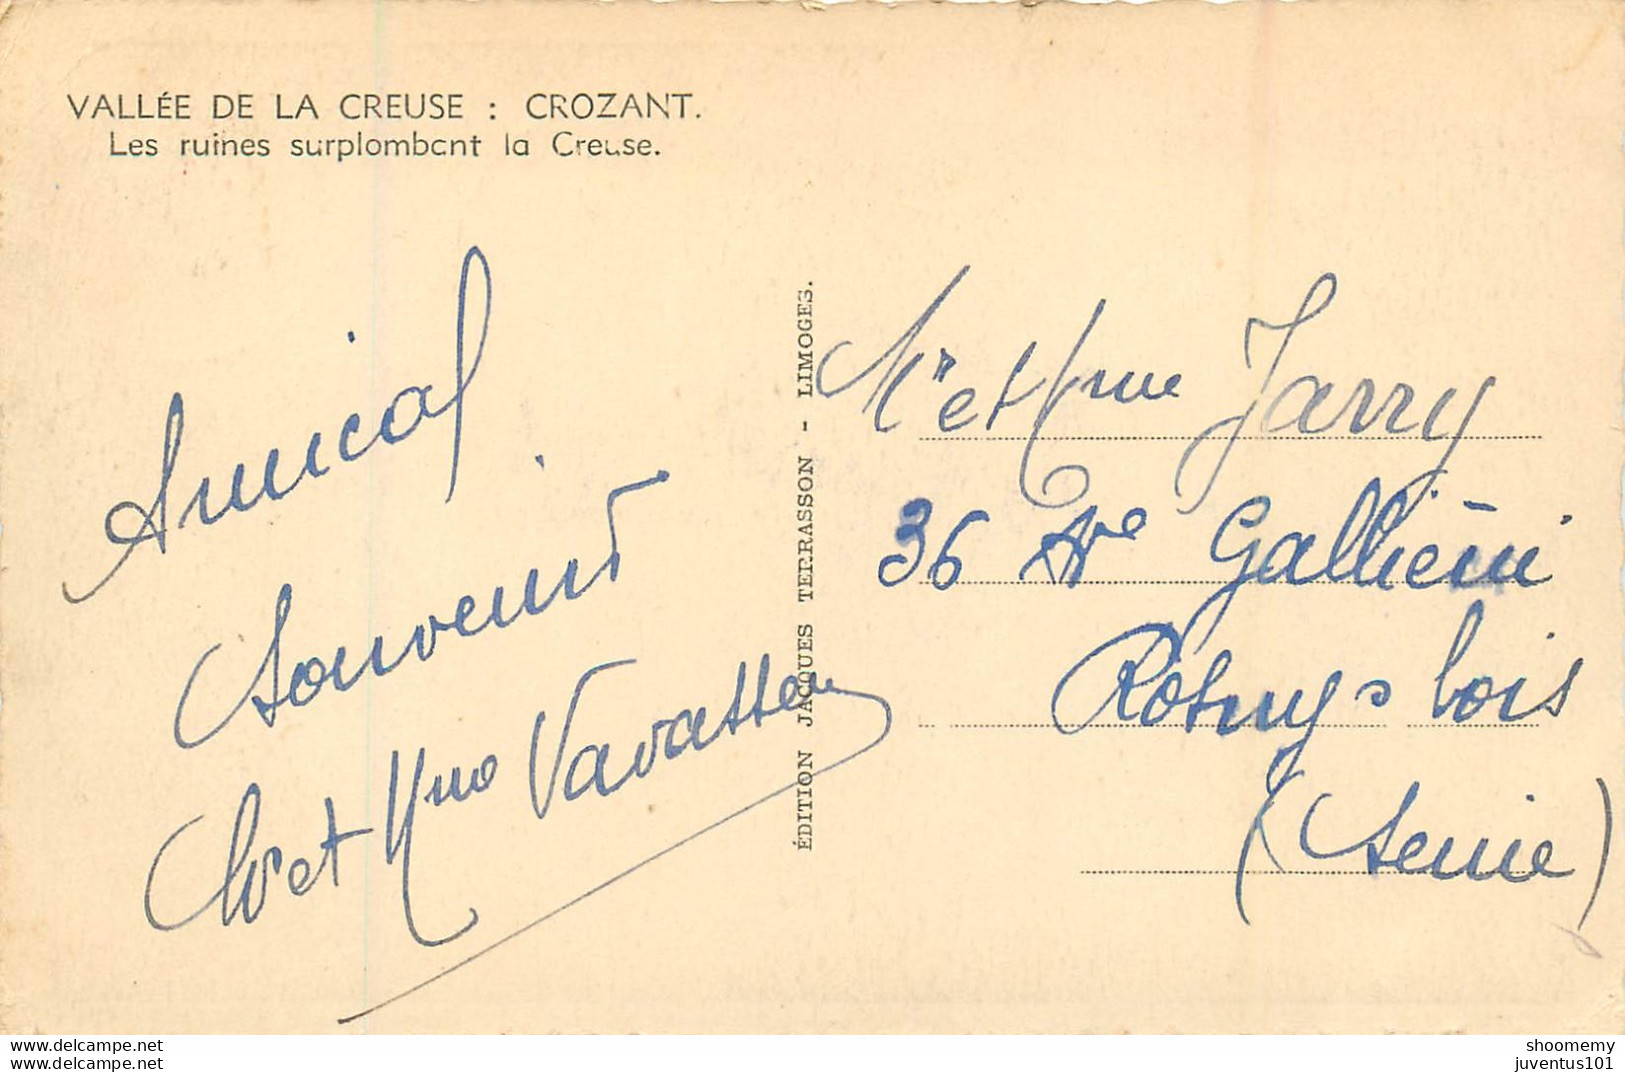 VALLÉE DE LA CREUSE : CROZANT.
Les ruines surplombant la Creuse.
Amical
Souvenir
Mr et Mme Vavasseur
ÉDITION JACQUES TERRASSON - LIMOGES.
Mr et Mme Jarry
36 Ave Galliéni
Rosny s bois
(Seine)
www.delcampe.net
www.delcampe.net
shoomemy
juventus101